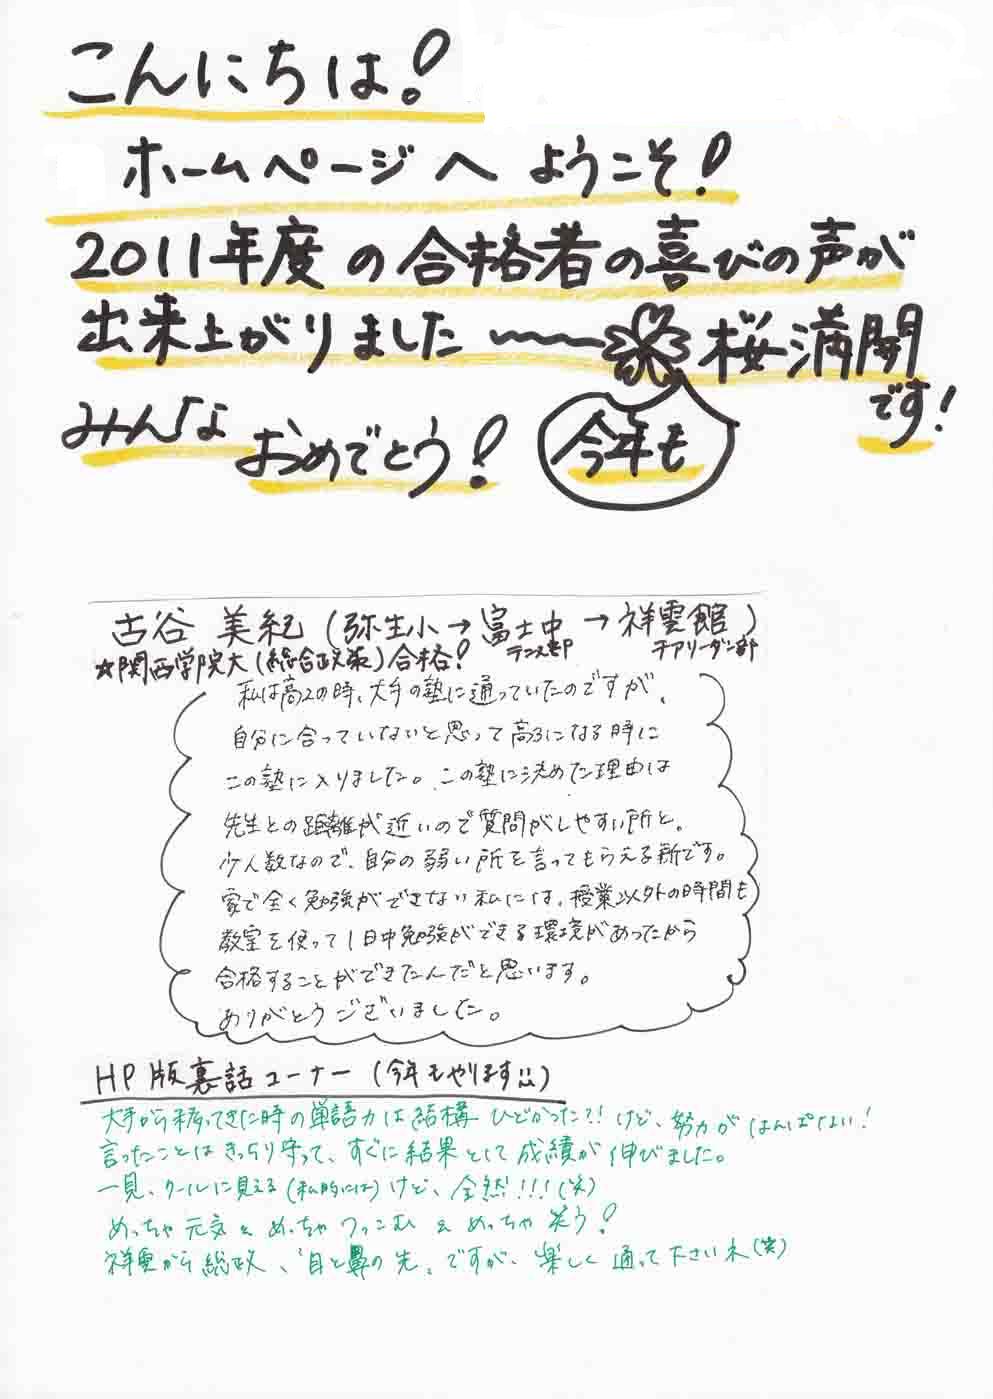 こんにちは!
ホームページへようこそ!
2011年度の合格者の喜びの声が
出来上がりました〜〜 桜満開
です!
今年も
みんな おめでとう!
古谷 美紀 (弥生小→富士中→祥雲館)
テニス部 チアリーダー部
★関西学院大(総合政策)合格!
私は高2の時、大手の塾に通っていたのですが、
自分に合っていないと思って高3になる時に
この塾に入りました。この塾に決めた理由は
先生との距離が近いので質問がしやすい所と。
少人数なので、自分の弱い所を言ってもらえる所です。
家で全く勉強ができない私には、授業以外の時間も
教室を使って1日中勉強ができる環境があったから
合格することができたんだと思います。
ありがとうございました。
HP版裏話コーナー (今年もやります!!)
大手から移ってきた時の単語力は結構 ひどかった?! けど、努力がはんぱない!
言ったことはきっちり守って、すぐに結果として成績が伸びました。
一見、クールに見える(私的には)けど、全然!!!(笑)
めっちゃ元気&めっちゃつっこむ&めっちゃ笑う!
祥雲から総政、「目と鼻の先」ですが、楽しく通って下さいネ(笑)